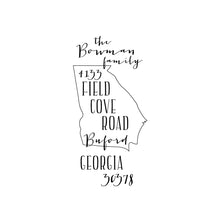 the
Bowman
family
4133
FIELD
COVE
ROAD
Buford
GEORGIA
30378